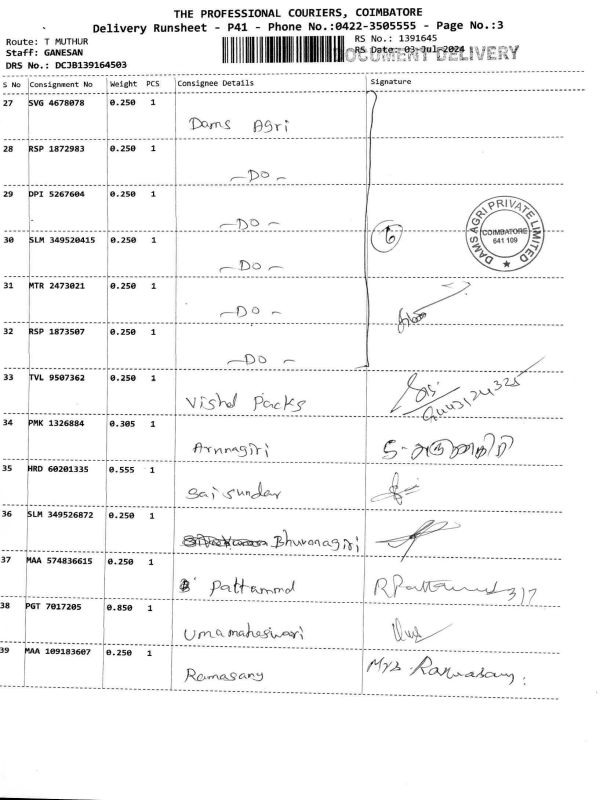 THE PROFESSIONAL COURIERS, COIMBATORE
Delivery Runsheet - P41 - Phone No.:0422-3505555 - Page No.:3
Route: T MUTHUR
RS No.: 1391645
Staff: GANESAN
RS Date: 03-Jul-2024
DOCUMENT DELIVERY
DRS No.: DCJB139164503
S No Consignment No Weight PCS Consignee Details Signature
27 SVG 4678078 0.250 1
Dams Agri
28 RSP 1872983 0.250 1
-DO-
29 DPI 5267604 0.250 1
-DO-
6
DAMS AGRI PRIVATE LIMITED
COIMBATORE
641 109
30 SLM 349520415 0.250 1
-DO-
31 MTR 2473021 0.250 1
-DO-
32 RSP 1873507 0.250 1
-DO-
33 TVL 9507362 0.250 1
Vishal Packs
34 PMK 1326884 0.305 1
Arunagiri
35 HRD 60201335 0.555 1
Sai sundar
36 SLM 349526872 0.250 1
Bhuvanagiri
37 MAA 574836615 0.250 1
Pattammal R Pattammal 3/7
38 PGT 7017205 0.850 1
Umamaheswari
39 MAA 109183607 0.250 1
Ramasamy Mrs. Ramasamy.